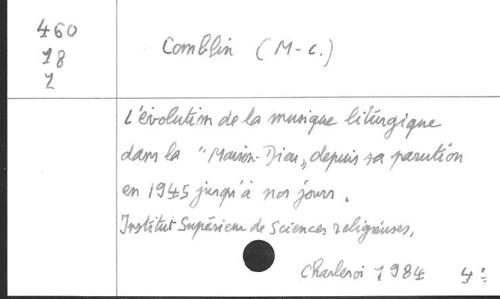 460
18
1
Comblin (M-C.)
L'évolution de la musique liturgique
dans la "Maison-Dieu„ depuis sa parution
en 1945 jusqu'à nos jours.
Institut Supérieur de Sciences religieuses,
Charleroi 1984 4°